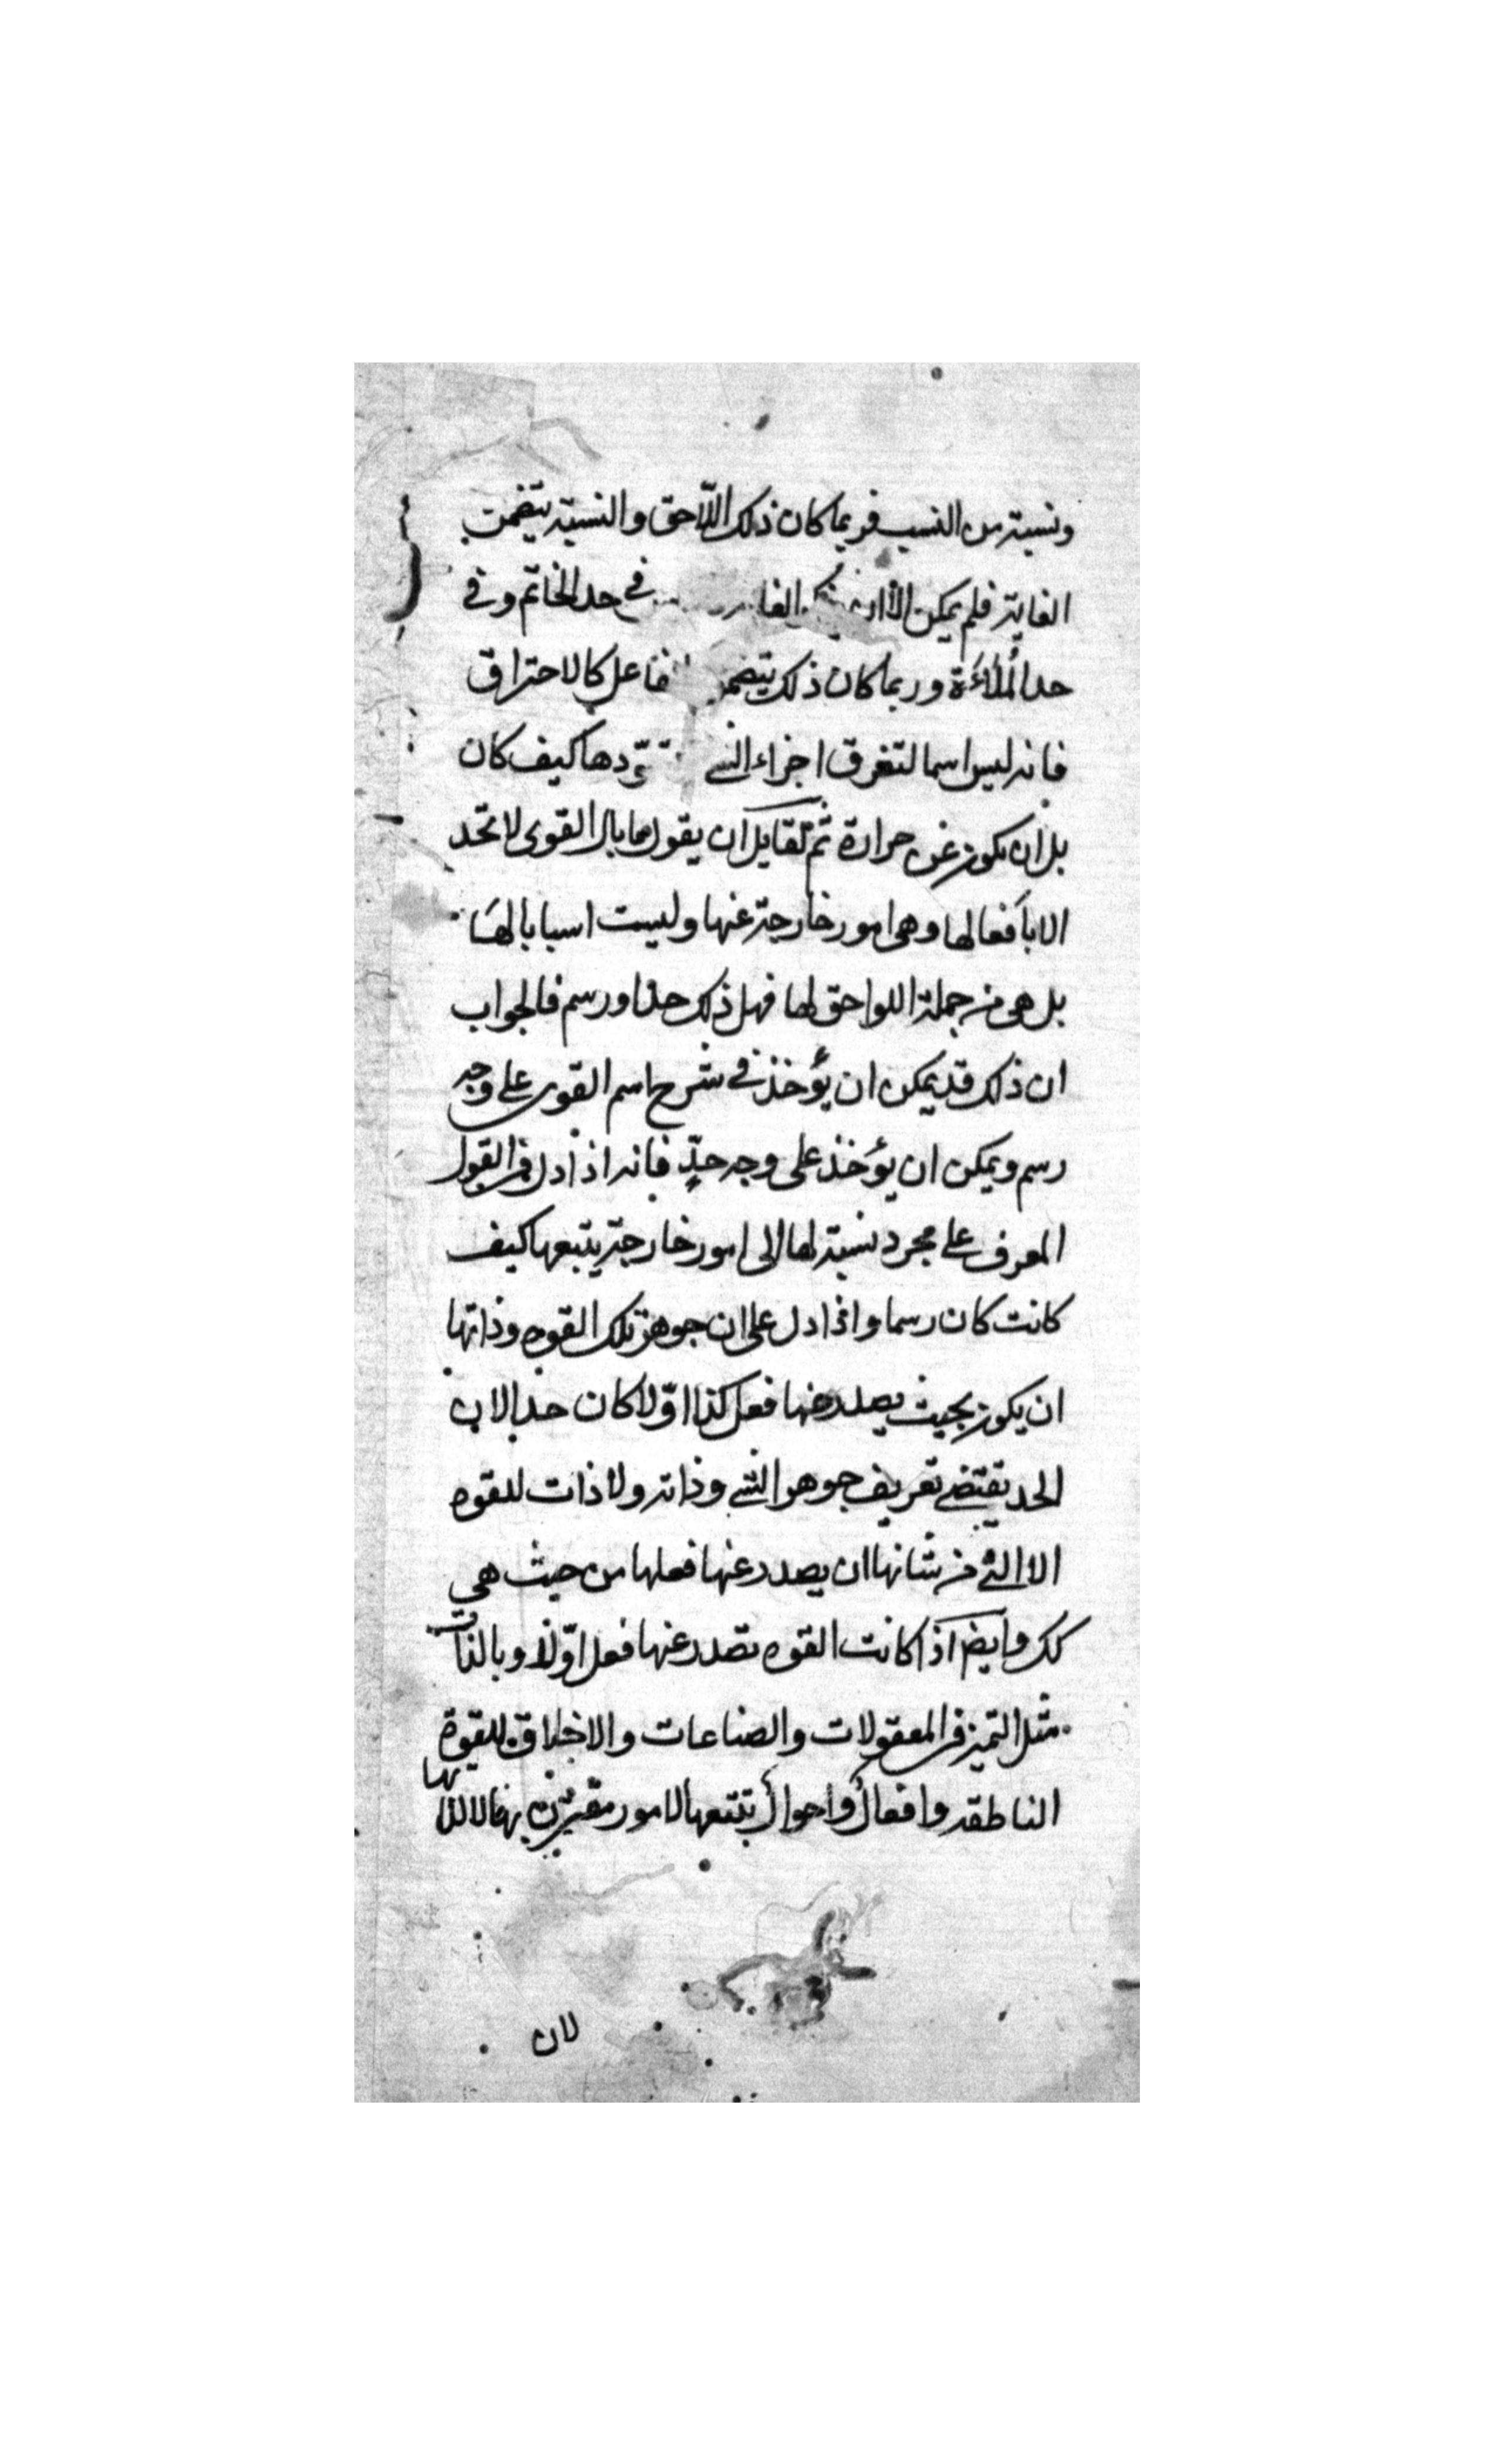 ونسبة من النسب فربما كان ذلك اللّاحق والنسبة يتضمن
الغاية فلم يمكن الا ان في حد الخاتم وفي
حد المُلاَءَة وربما كان ذلك يتضمن فاعل كالاحتراق
فانه ليس اسما لتفرق اجزاء الشي كيف كان
بل ان يكون عن حرارة ثم لقايل ان يقول ما بال القوى لا تحد
الا بأفعالها وهي امور خارجة عنها وليست اسبابا لها
بل هي من جملة اللواحق لها فهل ذلك حدا ورسم فالجواب
ان ذلك قد يمكن ان يؤخذ في شرح اسم القوى على وجه
رسم ويمكن ان يؤخذ على وجه حدٍّ فانه اذا دل في القول
المعرف على مجرد نسبة لها الى امور خارجة يتبعها كيف
كانت كان رسما واذا دل على ان جوهر تلك القوه وذاتها
ان يكون بحيث يصدر عنها فعل كذا اوّلا كان حدا لان
الحد يقتضي تعريف جوهر الشي وذاته ولا ذات للقوه
الا التي من شانها ان يصدر عنها فعلها من حيث هي
كك وايضا اذا كانت القوه تصدر عنها فعل اوّلا وبالذات
مثل التميز في المعقولات والصناعات والاخلاق للقوة
الناطقه وافعال واحوال تتبعها لامور بها لا لذاتها
لان